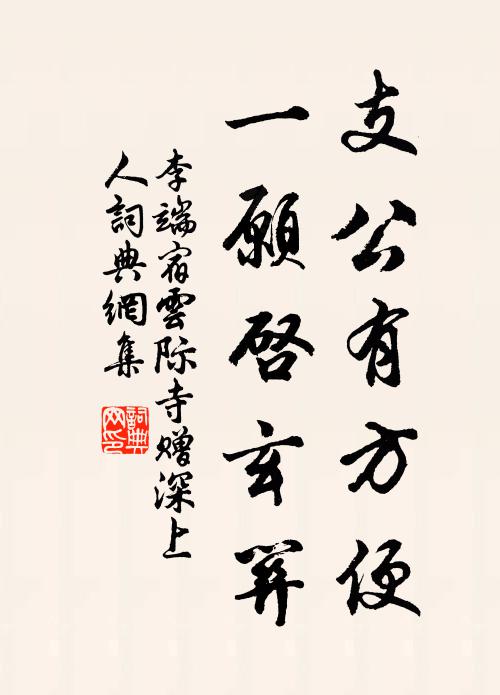 支公有方便
一願启玄關
李端宿雲际寺赠深上
人詞典網集
詞典
网印